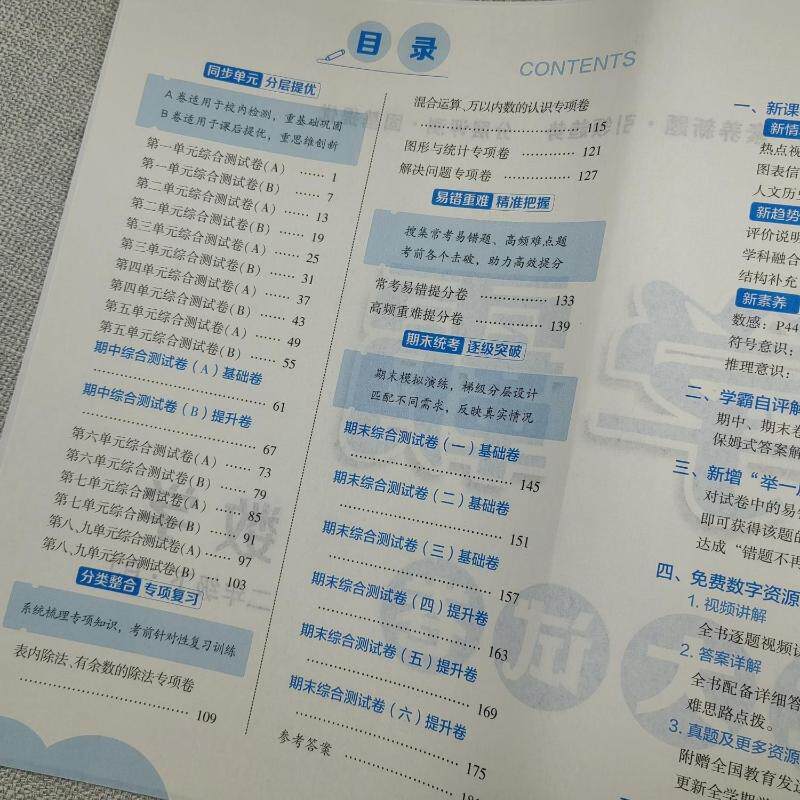 目 录
CONTENTS
同步单元 分层提优
A 卷适用于校内检测，重基础巩固
B 卷适用于课后提优，重思维创新
第一单元综合测试卷(A) …… 1
第一单元综合测试卷(B) …… 7
第二单元综合测试卷(A) …… 13
第二单元综合测试卷(B) …… 19
第三单元综合测试卷(A) …… 25
第三单元综合测试卷(B) …… 31
第四单元综合测试卷(A) …… 37
第四单元综合测试卷(B) …… 43
第五单元综合测试卷(A) …… 49
第五单元综合测试卷(B) …… 55
期中综合测试卷（A）基础卷
…………………… 61
期中综合测试卷（B）提升卷
…………………… 67
第六单元综合测试卷(A) …… 73
第六单元综合测试卷(B) …… 79
第七单元综合测试卷(A) …… 85
第七单元综合测试卷(B) …… 91
第八、九单元综合测试卷(A) …… 97
第八、九单元综合测试卷(B) …… 103
分类整合 专项复习
系统梳理专项知识，考前针对性复习训练
表内除法、有余数的除法专项卷
…………………… 109
混合运算、万以内数的认识专项卷
…………………… 115
图形与统计专项卷 …… 121
解决问题专项卷 …… 127
易错重难 精准把握
搜集常考易错题、高频难点题
考前各个击破，助力高效提分
常考易错提分卷 …………… 133
高频重难提分卷 …………… 139
期末统考 逐级突破
期末模拟演练，梯级分层设计
匹配不同需求，反映真实情况
期末综合测试卷（一）基础卷
…………………… 145
期末综合测试卷（二）基础卷
…………………… 151
期末综合测试卷（三）基础卷
…………………… 157
期末综合测试卷（四）提升卷
…………………… 163
期末综合测试卷（五）提升卷
…………………… 169
期末综合测试卷（六）提升卷
…………………… 175
参考答案 ……………
一、新课
新情
热点视
图表信
人文历
新趋势
评价说明
学科融合
结构补充
新素养
数感：P44
符号意识：
推理意识：
二、学霸自评解
期中、期末卷
保姆式答案解
三、新增“举一
对试卷中的易
即可获得该题的
达成“错题不再
四、免费数字资源
1. 视频讲解
全书逐题视频讲
2. 答案详解
全书配备详细答
难思路点拨。
3. 真题及更多资源
附赠全国教育发达
更新全学期